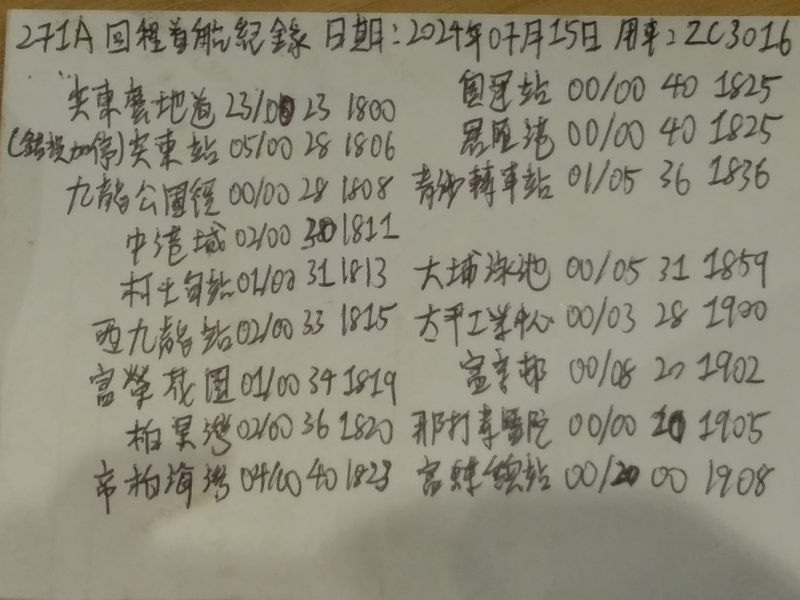 271A 回程首航紀錄 日期:2024年07月15日 用車:ZC3016
尖東麼地道 23/00 23 1800
(錯誤加停)尖東站 05/00 28 1806
九龍公園徑 00/00 28 1808
中港城 02/00 30 1811
柯士甸站 01/00 31 1813
西九龍站 02/00 33 1815
富榮花園 01/00 34 1819
柏景灣 02/00 36 1820
帝柏海灣 04/00 40 1823
奧運站 00/00 40 1825
君匯港 00/00 40 1825
青沙轉車站 01/05 36 1836
大埔泳池 00/05 31 1859
太平工業中心 00/03 28 1900
富亨邨 00/08 20 1902
那打素醫院 00/00 20 1905
富蝶總站 00/20 00 1908